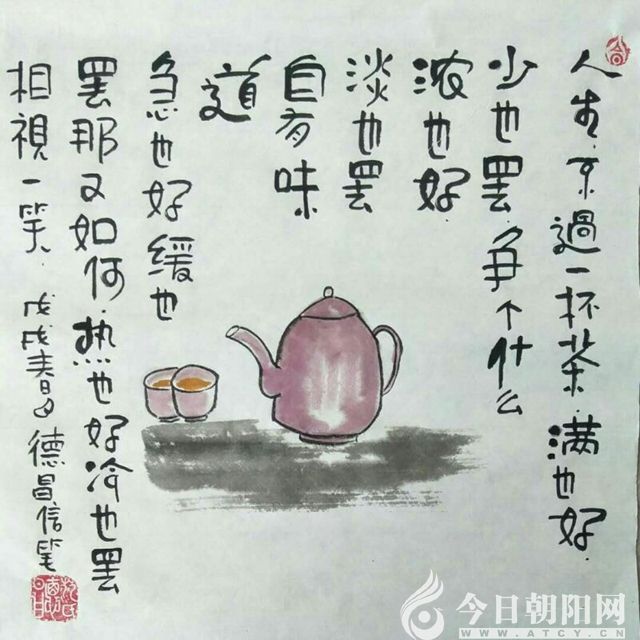 人生.不過一杯茶.满也好.
少也罢.争个什么
浓也好.
淡也罢
自有味
道
急也好缓也
罢那又如何.热也好冷也罢
相視一笑.戊戌春日德昌信笔
今日朝阳网
WWW.ATCY.CN